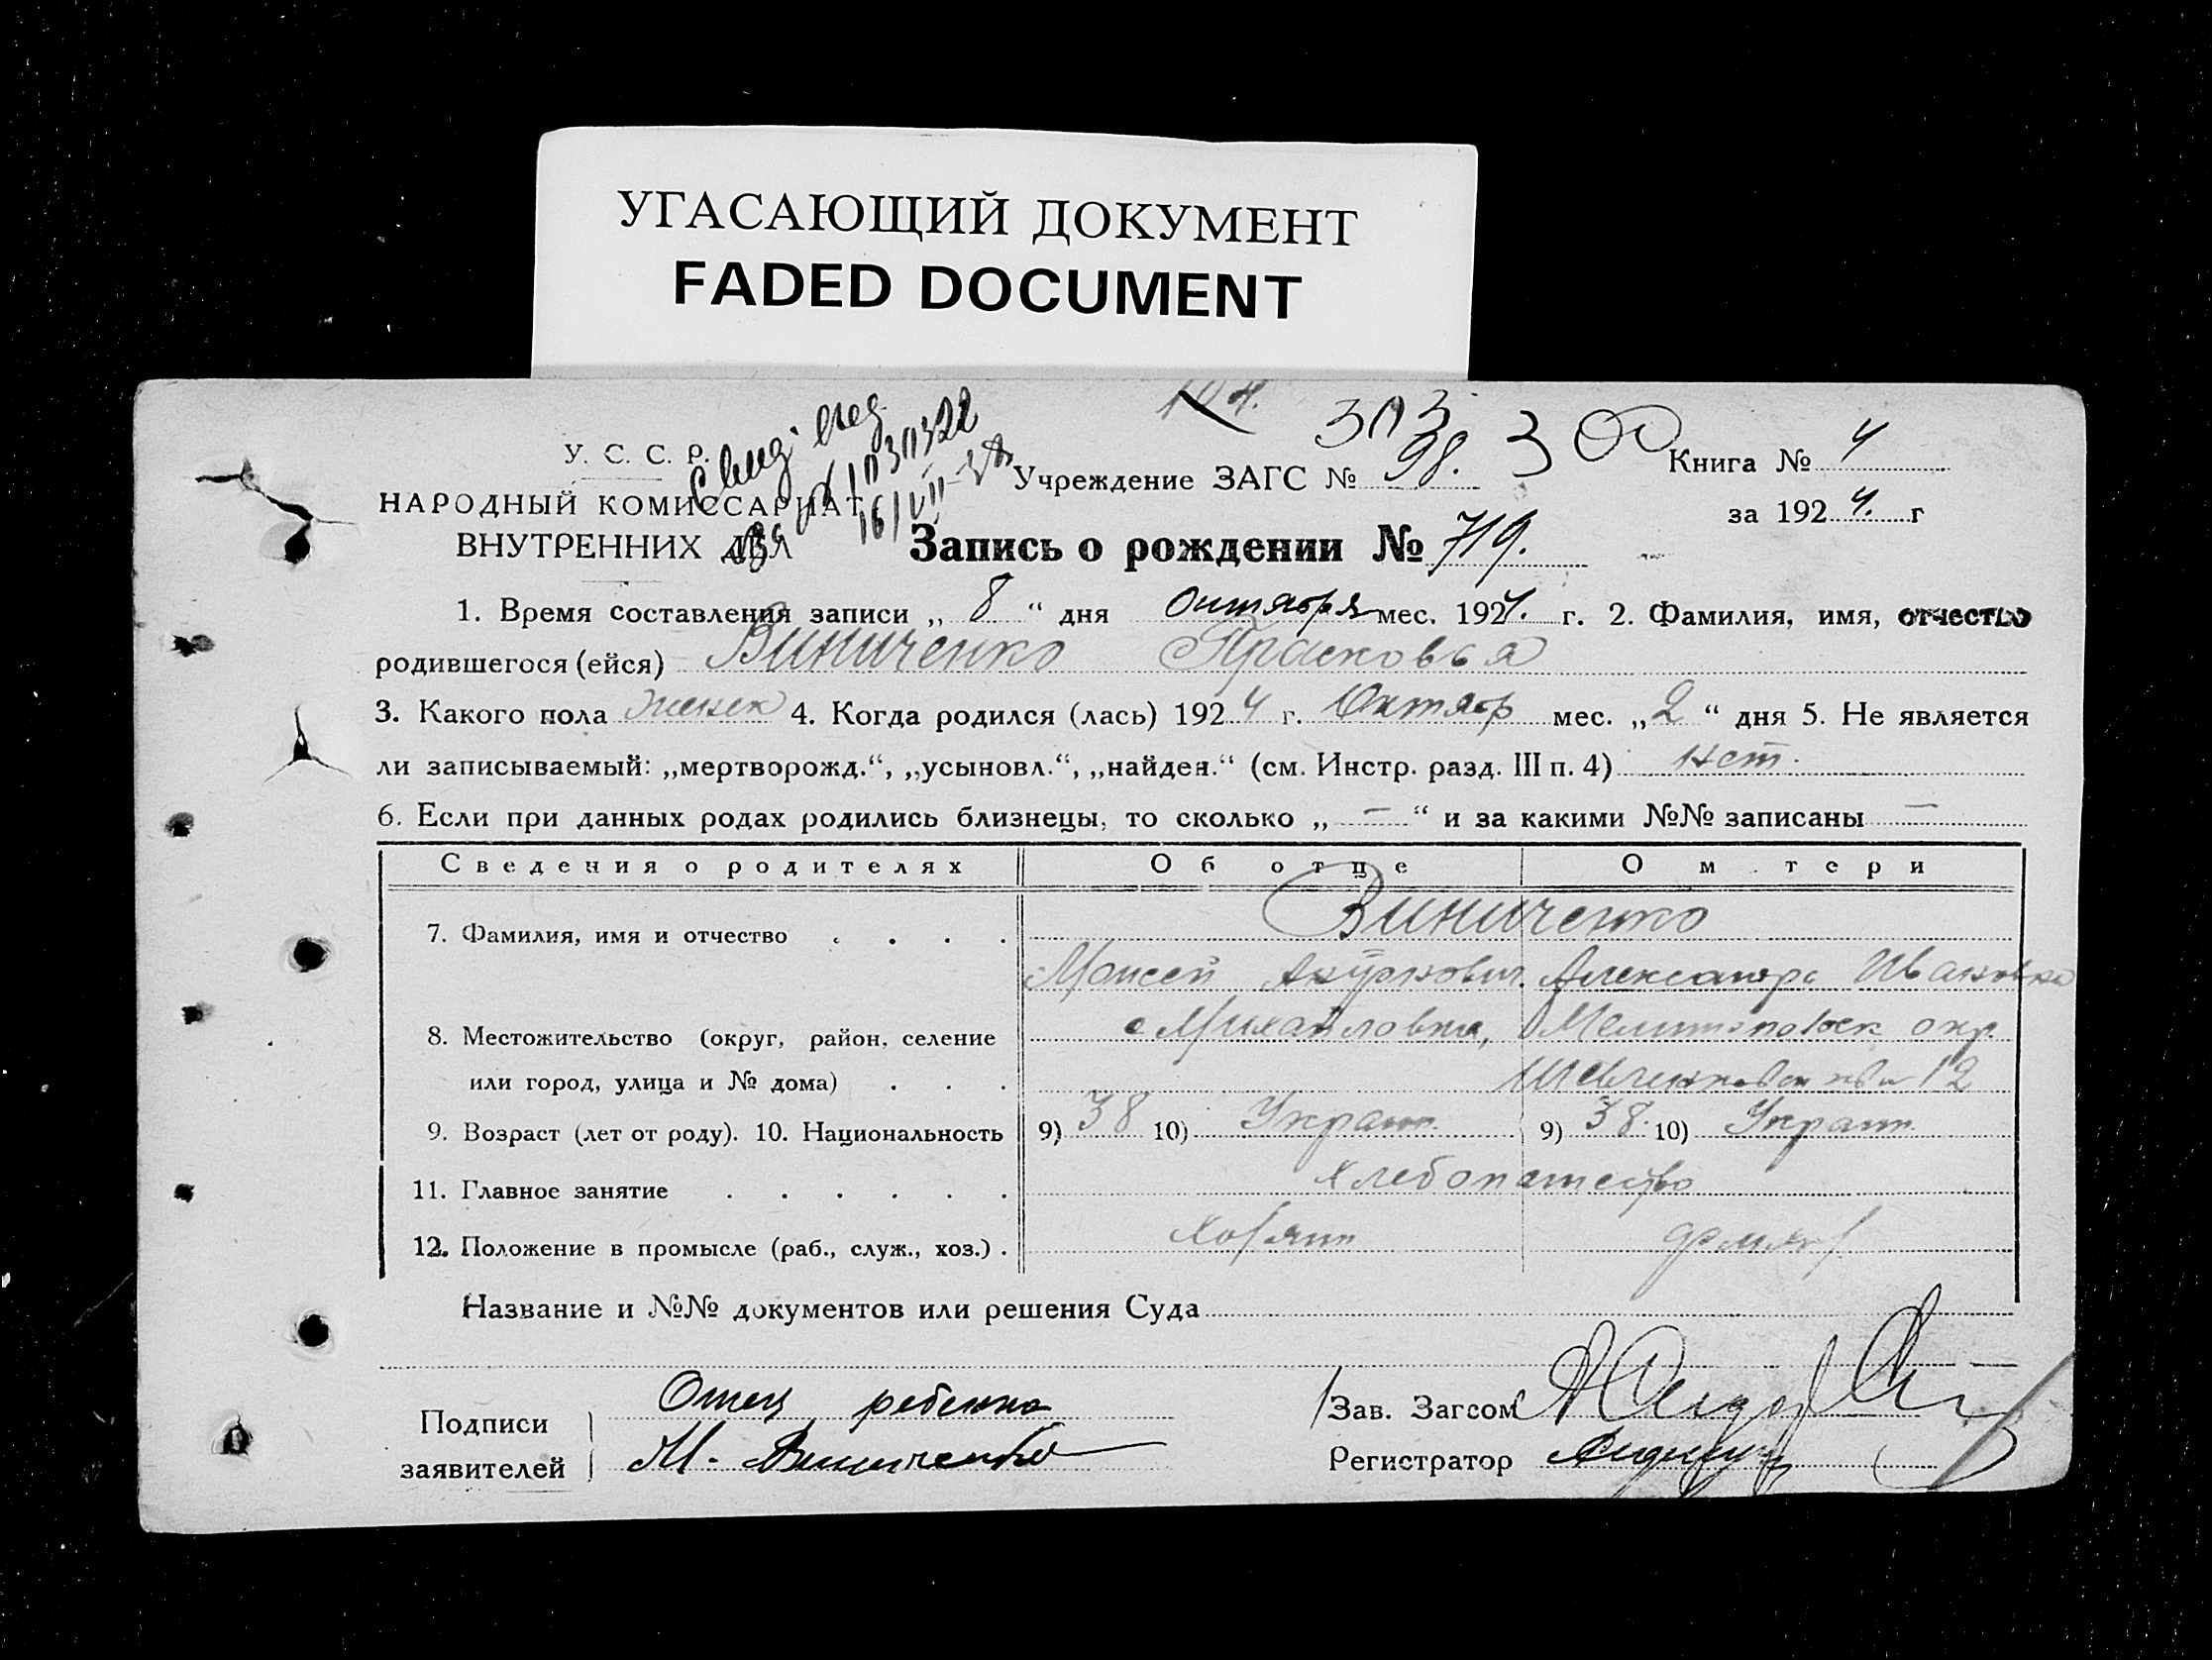 УГАСАЮЩИЙ ДОКУМЕНТ
FADED DOCUMENT
303
У. С. С. Р.
НАРОДНЫЙ КОМИССАРИАТ
ВНУТРЕННИХ ДЕЛ
Учреждение ЗАГС № 98.
Книга № 4
за 1924. г
Запись о рождении № 719.
1. Время составления записи „ 8 “ дня Октября мес. 1924. г. 2. Фамилия, имя, отчество
родившегося (ейся) Виниченко Прасковья
3. Какого пола женск 4. Когда родился (лась) 1924 г. Октябр мес. „ 2 “ дня 5. Не является
ли записываемый: „мертворожд.“, „усыновл.“, „найден.“ (см. Инстр. разд. III п. 4) Нет.
6. Если при данных родах родились близнецы, то сколько „ — “ и за какими №№ записаны —
Сведения о родителях Об отце О м тери
Виниченко
7. Фамилия, имя и отчество . . . .
Моисей Александра Ивановна
8. Местожительство (округ, район, селение с Михайловка, Мелитопольск окр.
или город, улица и № дома) . . . 12
9. Возраст (лет от роду). 10. Национальность 9) 38 10) Украин 9) 38. 10) Украин
11. Главное занятие . . . . . . Хлебопашество
12. Положение в промысле (раб., служ., хоз.) . Хозяин
Название и №№ документов или решения Суда
Подписи Отец ребенка
заявителей М. Виниченко
Зав. Загсом
Регистратор